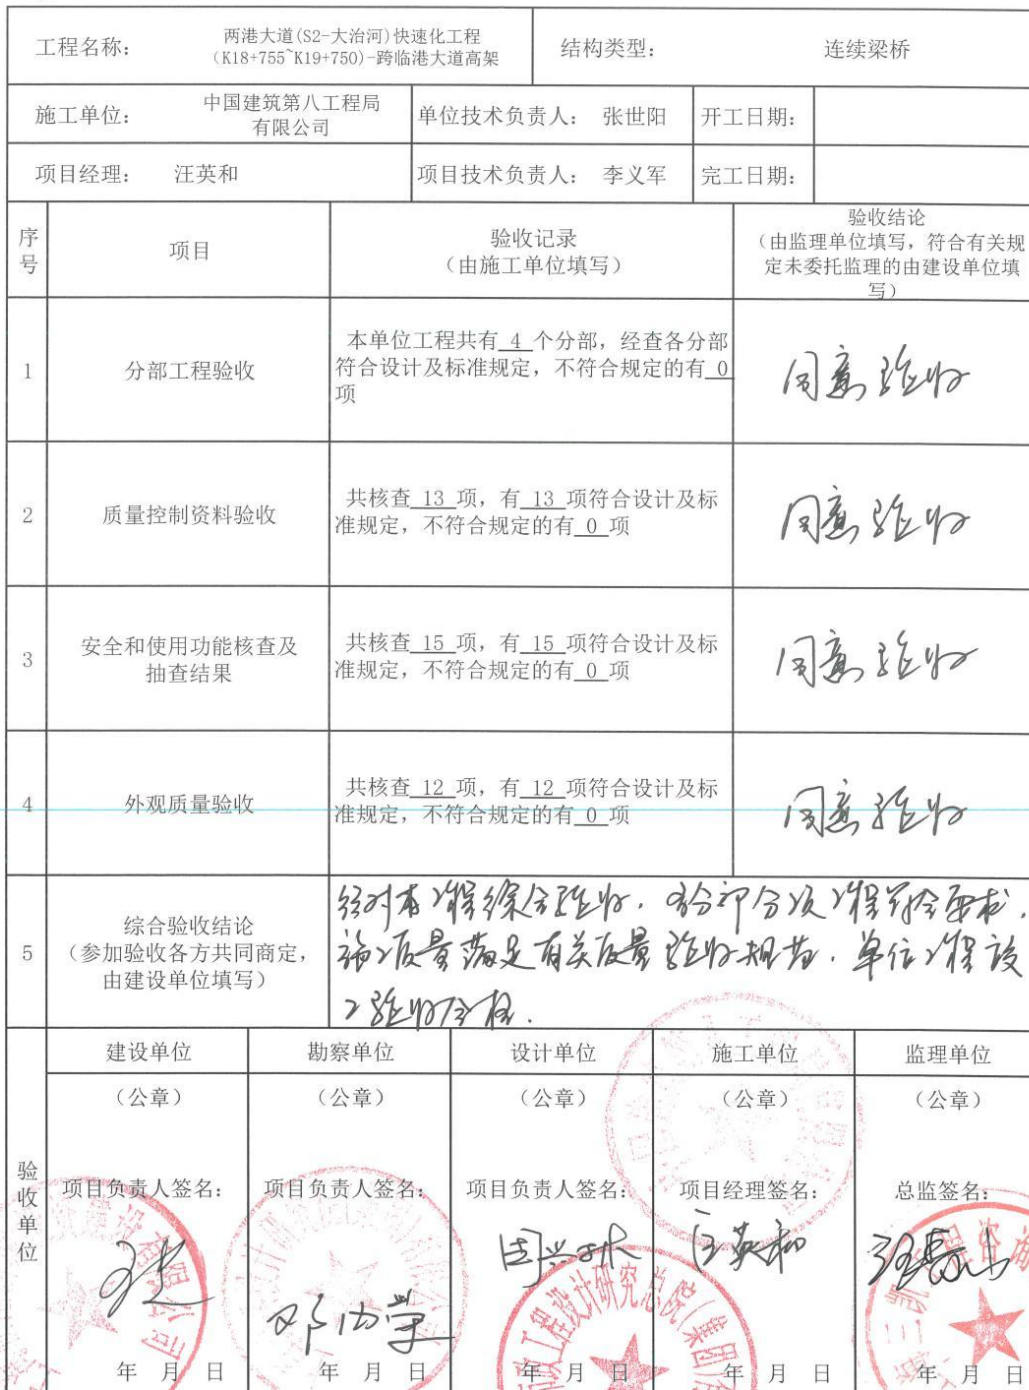 工程名称: 两港大道(S2-大治河)快速化工程
(K18+755~K19+750)-跨临港大道高架
结构类型: 连续梁桥
施工单位: 中国建筑第八工程局
有限公司
单位技术负责人: 张世阳
开工日期:
项目经理: 汪英和
项目技术负责人: 李义军
完工日期:
序
号
项目
验收记录
(由施工单位填写)
验收结论
(由监理单位填写,符合有关规
定未委托监理的由建设单位填
写)
1
分部工程验收
本单位工程共有 4 个分部,经查各分部
符合设计及标准规定,不符合规定的有 0
项
同意验收
2
质量控制资料验收
共核查 13 项,有 13 项符合设计及标
准规定,不符合规定的有 0 项
同意验收
3
安全和使用功能核查及
抽查结果
共核查 15 项,有 15 项符合设计及标
准规定,不符合规定的有 0 项
同意验收
4
外观质量验收
共核查 12 项,有 12 项符合设计及标
准规定,不符合规定的有 0 项
同意验收
5
综合验收结论
(参加验收各方共同商定,
由建设单位填写)
经对本工程综合验收,各分部分项工程符合要求,
施工质量满足有关质量验收规范,单位工程竣
工验收合格.
验
收
单
位
建设单位
勘察单位
设计单位
施工单位
监理单位
(公章)
(公章)
(公章)
(公章)
(公章)
项目负责人签名:
项目负责人签名:
项目负责人签名:
项目经理签名:
总监签名:
汪英和
建设有限公司
市政工程设计研究总院(集团)
工程咨询
年 月 日
年 月 日
年 月 日
年 月 日
年 月 日